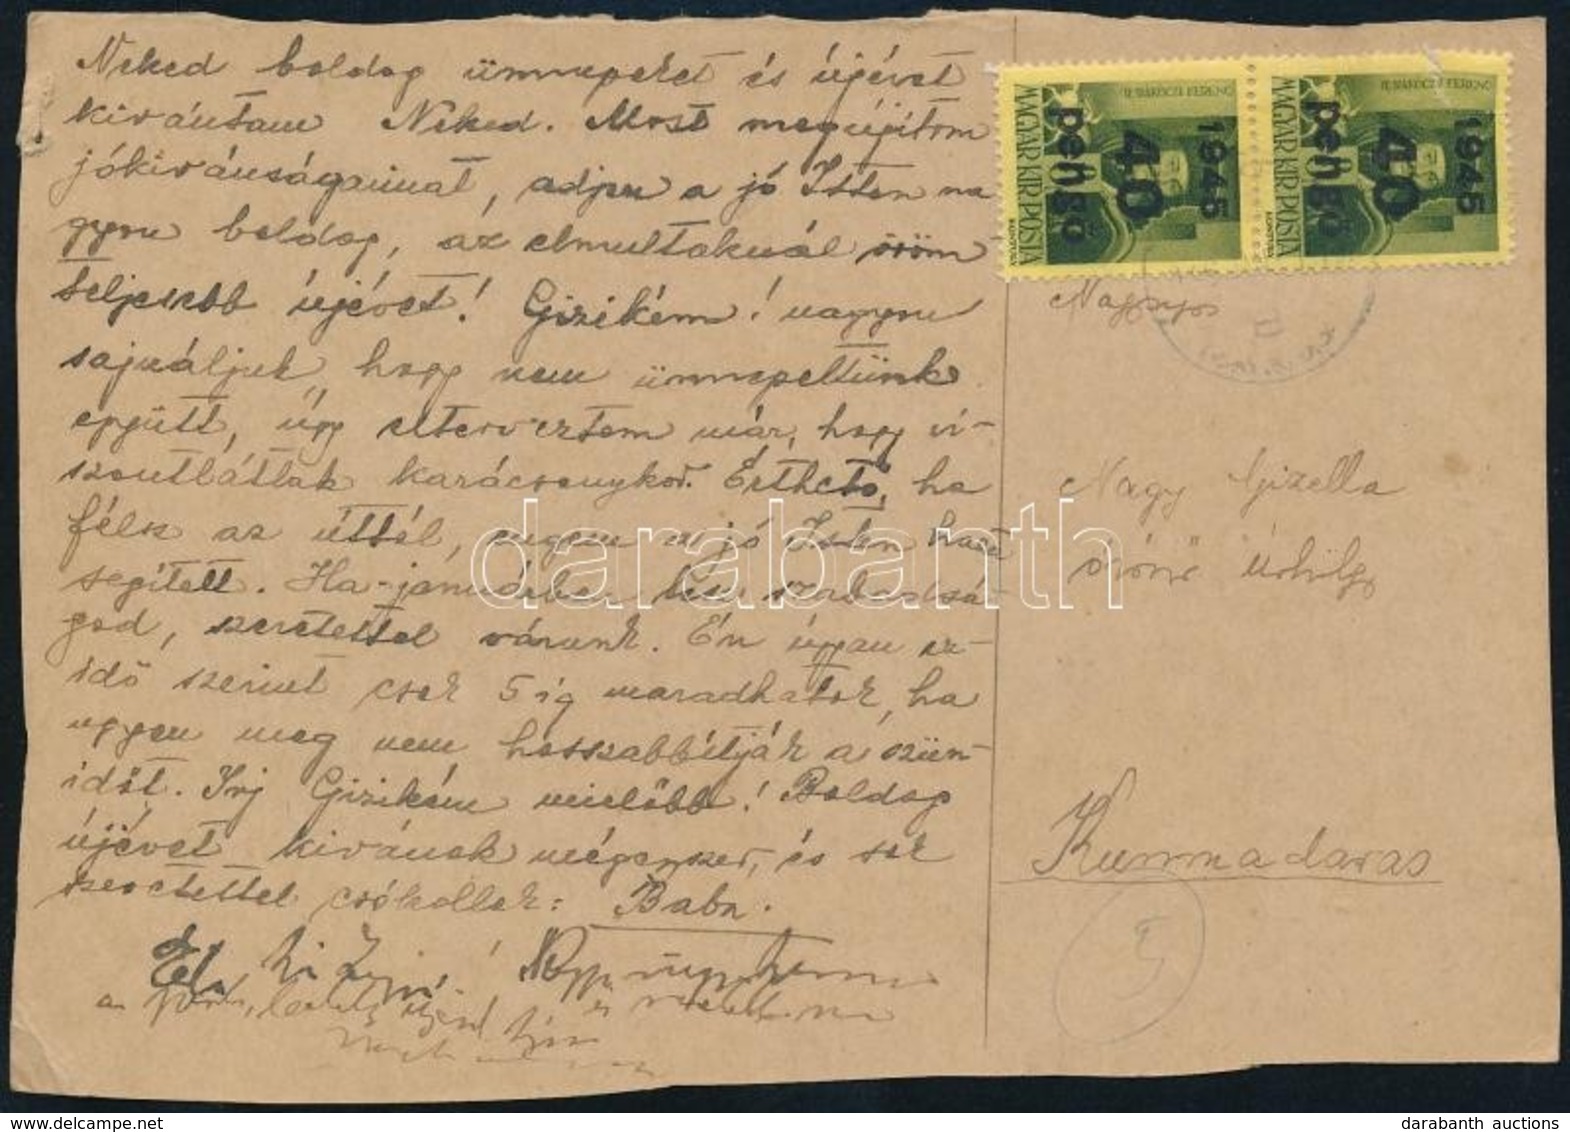 Neked boldog ünnepeket és újévet
kivántam Neked. Most megújítom
jókivánságaimat, adjon a jó Isten na
gyon boldog, az elmultaknál öröm
teljesebb újévet! Gizikém! nagyon
sajnáljuk, hogy nem ünnepeltünk
együtt, úgy elterveztem már, hogy vi-
szontlátlak karácsonykor. Érthető, ha
félsz az úttól, engem a jó Isten haza
segített. Ha januárban lesz szabadsá-
god, szeretettel várunk. Én úgyan ez-
idő szerint csak 5 ig maradhatok, ha
ugyan meg nem hosszabbítják a szün-
időt. Irj Gizikém mielőbb! Boldog
újévet kivánok mégegyszer, és sok
szeretettel csókollak: Baba.
MAGYAR KIR. POSTA
1945
40
pengő
II. RÁKÓCZI FERENC
MAGYAR KIR. POSTA
1945
40
pengő
II. RÁKÓCZI FERENC
Nagy Gizella
Kunmadaras
5
darabanth
darabanth auctions